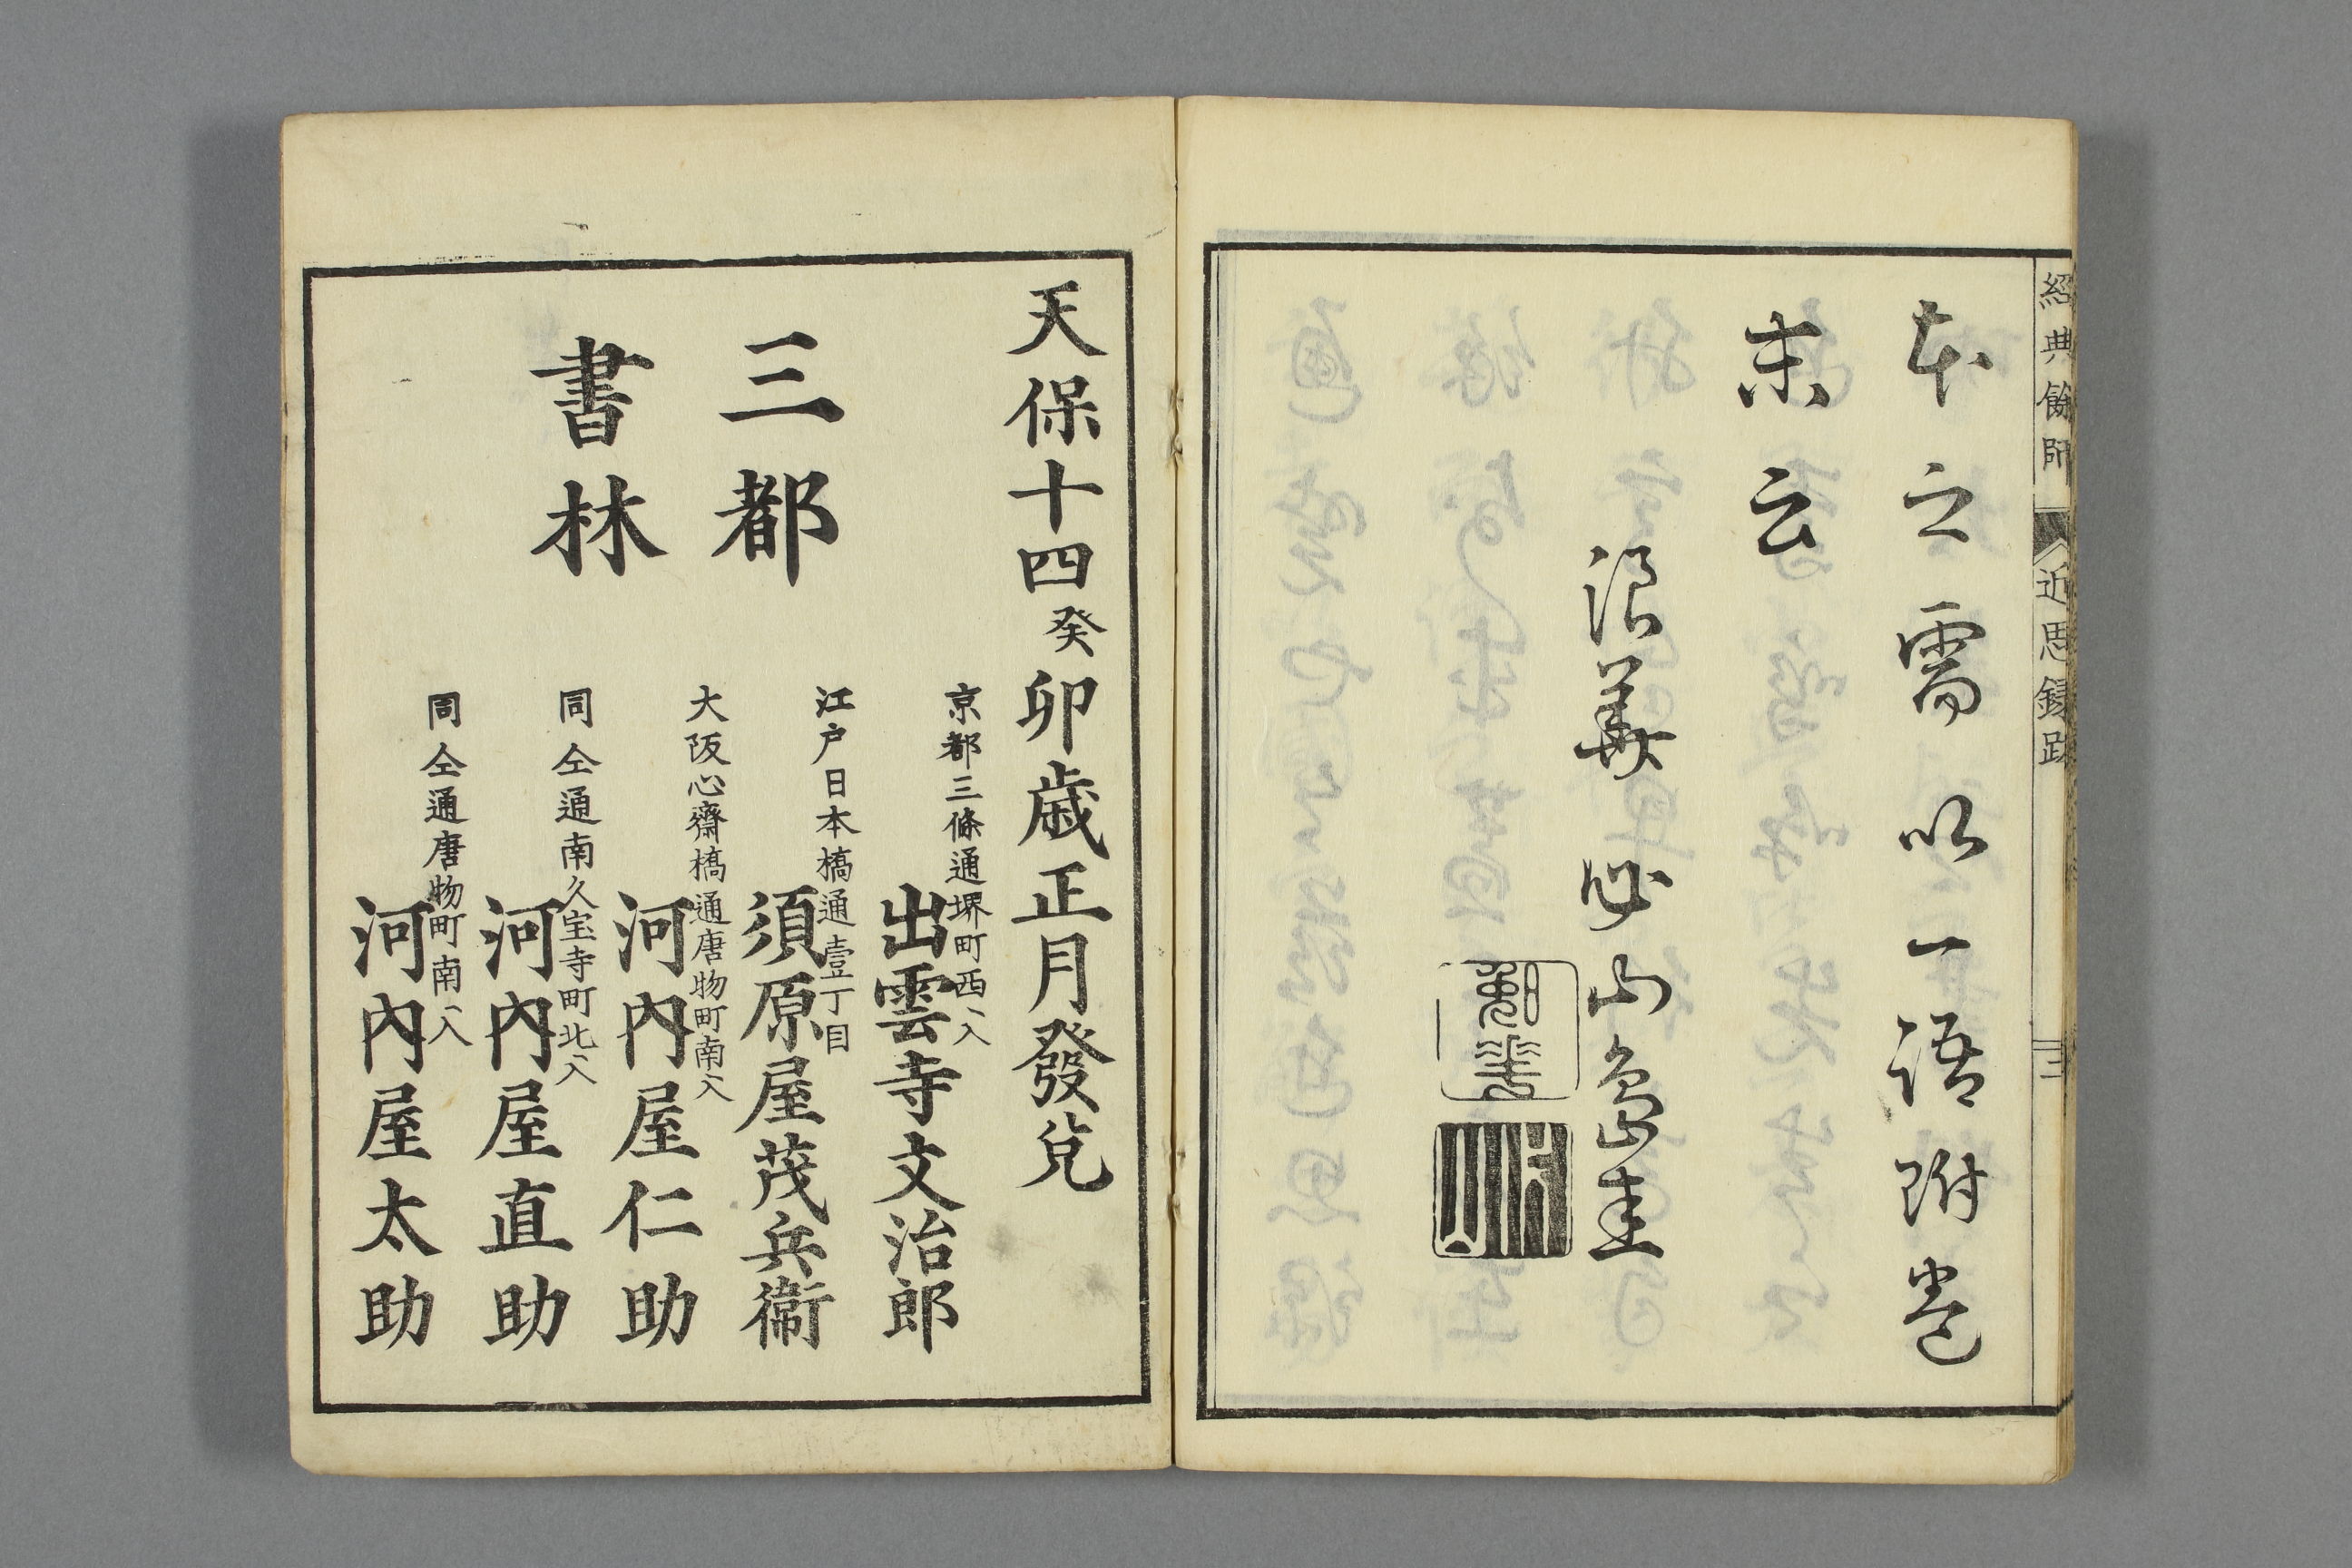 経典餘師
近思録跋
三
本之需以一語附巻
末云
浪華 必山島圭
天保十四癸卯歳正月發兌
三都
書林
京都三條通堺町西ヘ入
出雲寺文治郎
江戸日本橋通壹丁目
須原屋茂兵衞
大阪心齋橋通唐物町南ヘ入
河内屋仁助
同仝通南久宝寺町北ヘ入
河内屋直助
同仝通唐物町南ヘ入
河内屋太助